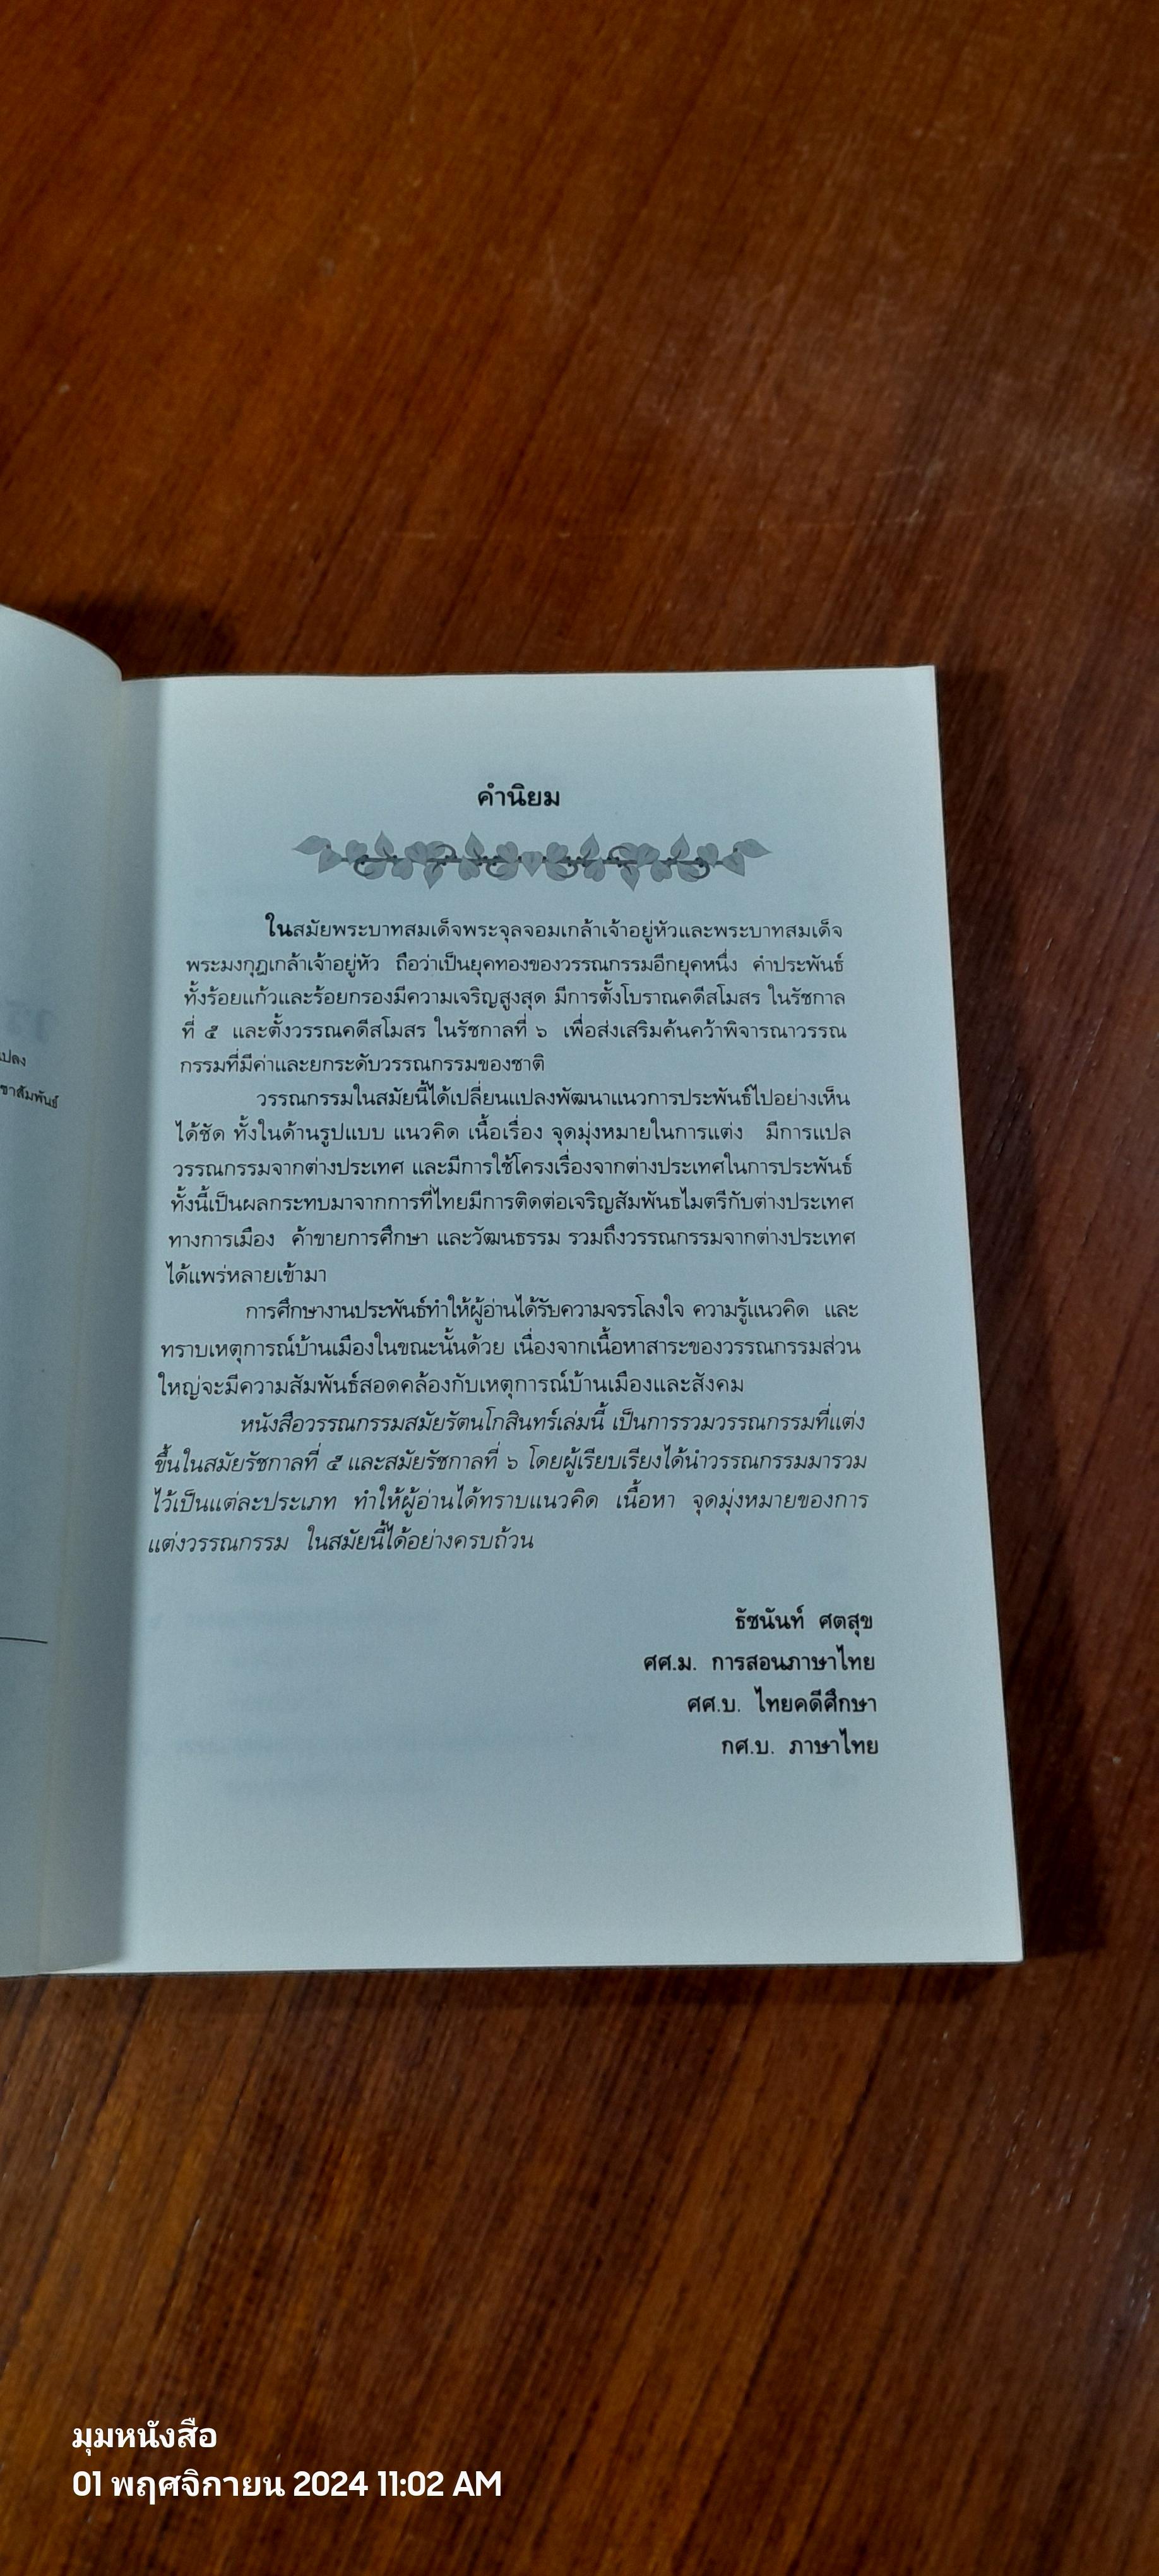 คำนิยม
ในสมัยพระบาทสมเด็จพระจุลจอมเกล้าเจ้าอยู่หัวและพระบาทสมเด็จ
พระมงกุฎเกล้าเจ้าอยู่หัว ถือว่าเป็นยุคทองของวรรณกรรมอีกยุคหนึ่ง คำประพันธ์
ทั้งร้อยแก้วและร้อยกรองมีความเจริญสูงสุด มีการตั้งโบราณคดีสโมสร ในรัชกาล
ที่ ๕ และตั้งวรรณคดีสโมสร ในรัชกาลที่ ๖ เพื่อส่งเสริมค้นคว้าพิจารณาวรรณ
กรรมที่มีค่าและยกระดับวรรณกรรมของชาติ
วรรณกรรมในสมัยนี้ได้เปลี่ยนแปลงพัฒนาแนวการประพันธ์ไปอย่างเห็น
ได้ชัด ทั้งในด้านรูปแบบ แนวคิด เนื้อเรื่อง จุดมุ่งหมายในการแต่ง มีการแปล
วรรณกรรมจากต่างประเทศ และมีการใช้โครงเรื่องจากต่างประเทศในการประพันธ์
ทั้งนี้เป็นผลกระทบมาจากการที่ไทยมีการติดต่อเจริญสัมพันธไมตรีกับต่างประเทศ
ทางการเมือง ค้าขายการศึกษา และวัฒนธรรม รวมถึงวรรณกรรมจากต่างประเทศ
ได้แพร่หลายเข้ามา
การศึกษางานประพันธ์ทำให้ผู้อ่านได้รับความจรรโลงใจ ความรู้แนวคิด และ
ทราบเหตุการณ์บ้านเมืองในขณะนั้นด้วย เนื่องจากเนื้อหาสาระของวรรณกรรมส่วน
ใหญ่จะมีความสัมพันธ์สอดคล้องกับเหตุการณ์บ้านเมืองและสังคม
หนังสือวรรณกรรมสมัยรัตนโกสินทร์เล่มนี้ เป็นการรวมวรรณกรรมที่แต่ง
ขึ้นในสมัยรัชกาลที่ ๕ และสมัยรัชกาลที่ ๖ โดยผู้เรียบเรียงได้นำวรรณกรรมมารวม
ไว้เป็นแต่ละประเภท ทำให้ผู้อ่านได้ทราบแนวคิด เนื้อหา จุดมุ่งหมายของการ
แต่งวรรณกรรม ในสมัยนี้ได้อย่างครบถ้วน
ธัชนันท์ ศตสุข
ศศ.ม. การสอนภาษาไทย
ศศ.บ. ไทยคดีศึกษา
กศ.บ. ภาษาไทย
มุมหนังสือ
01 พฤศจิกายน 2024 11:02 AM